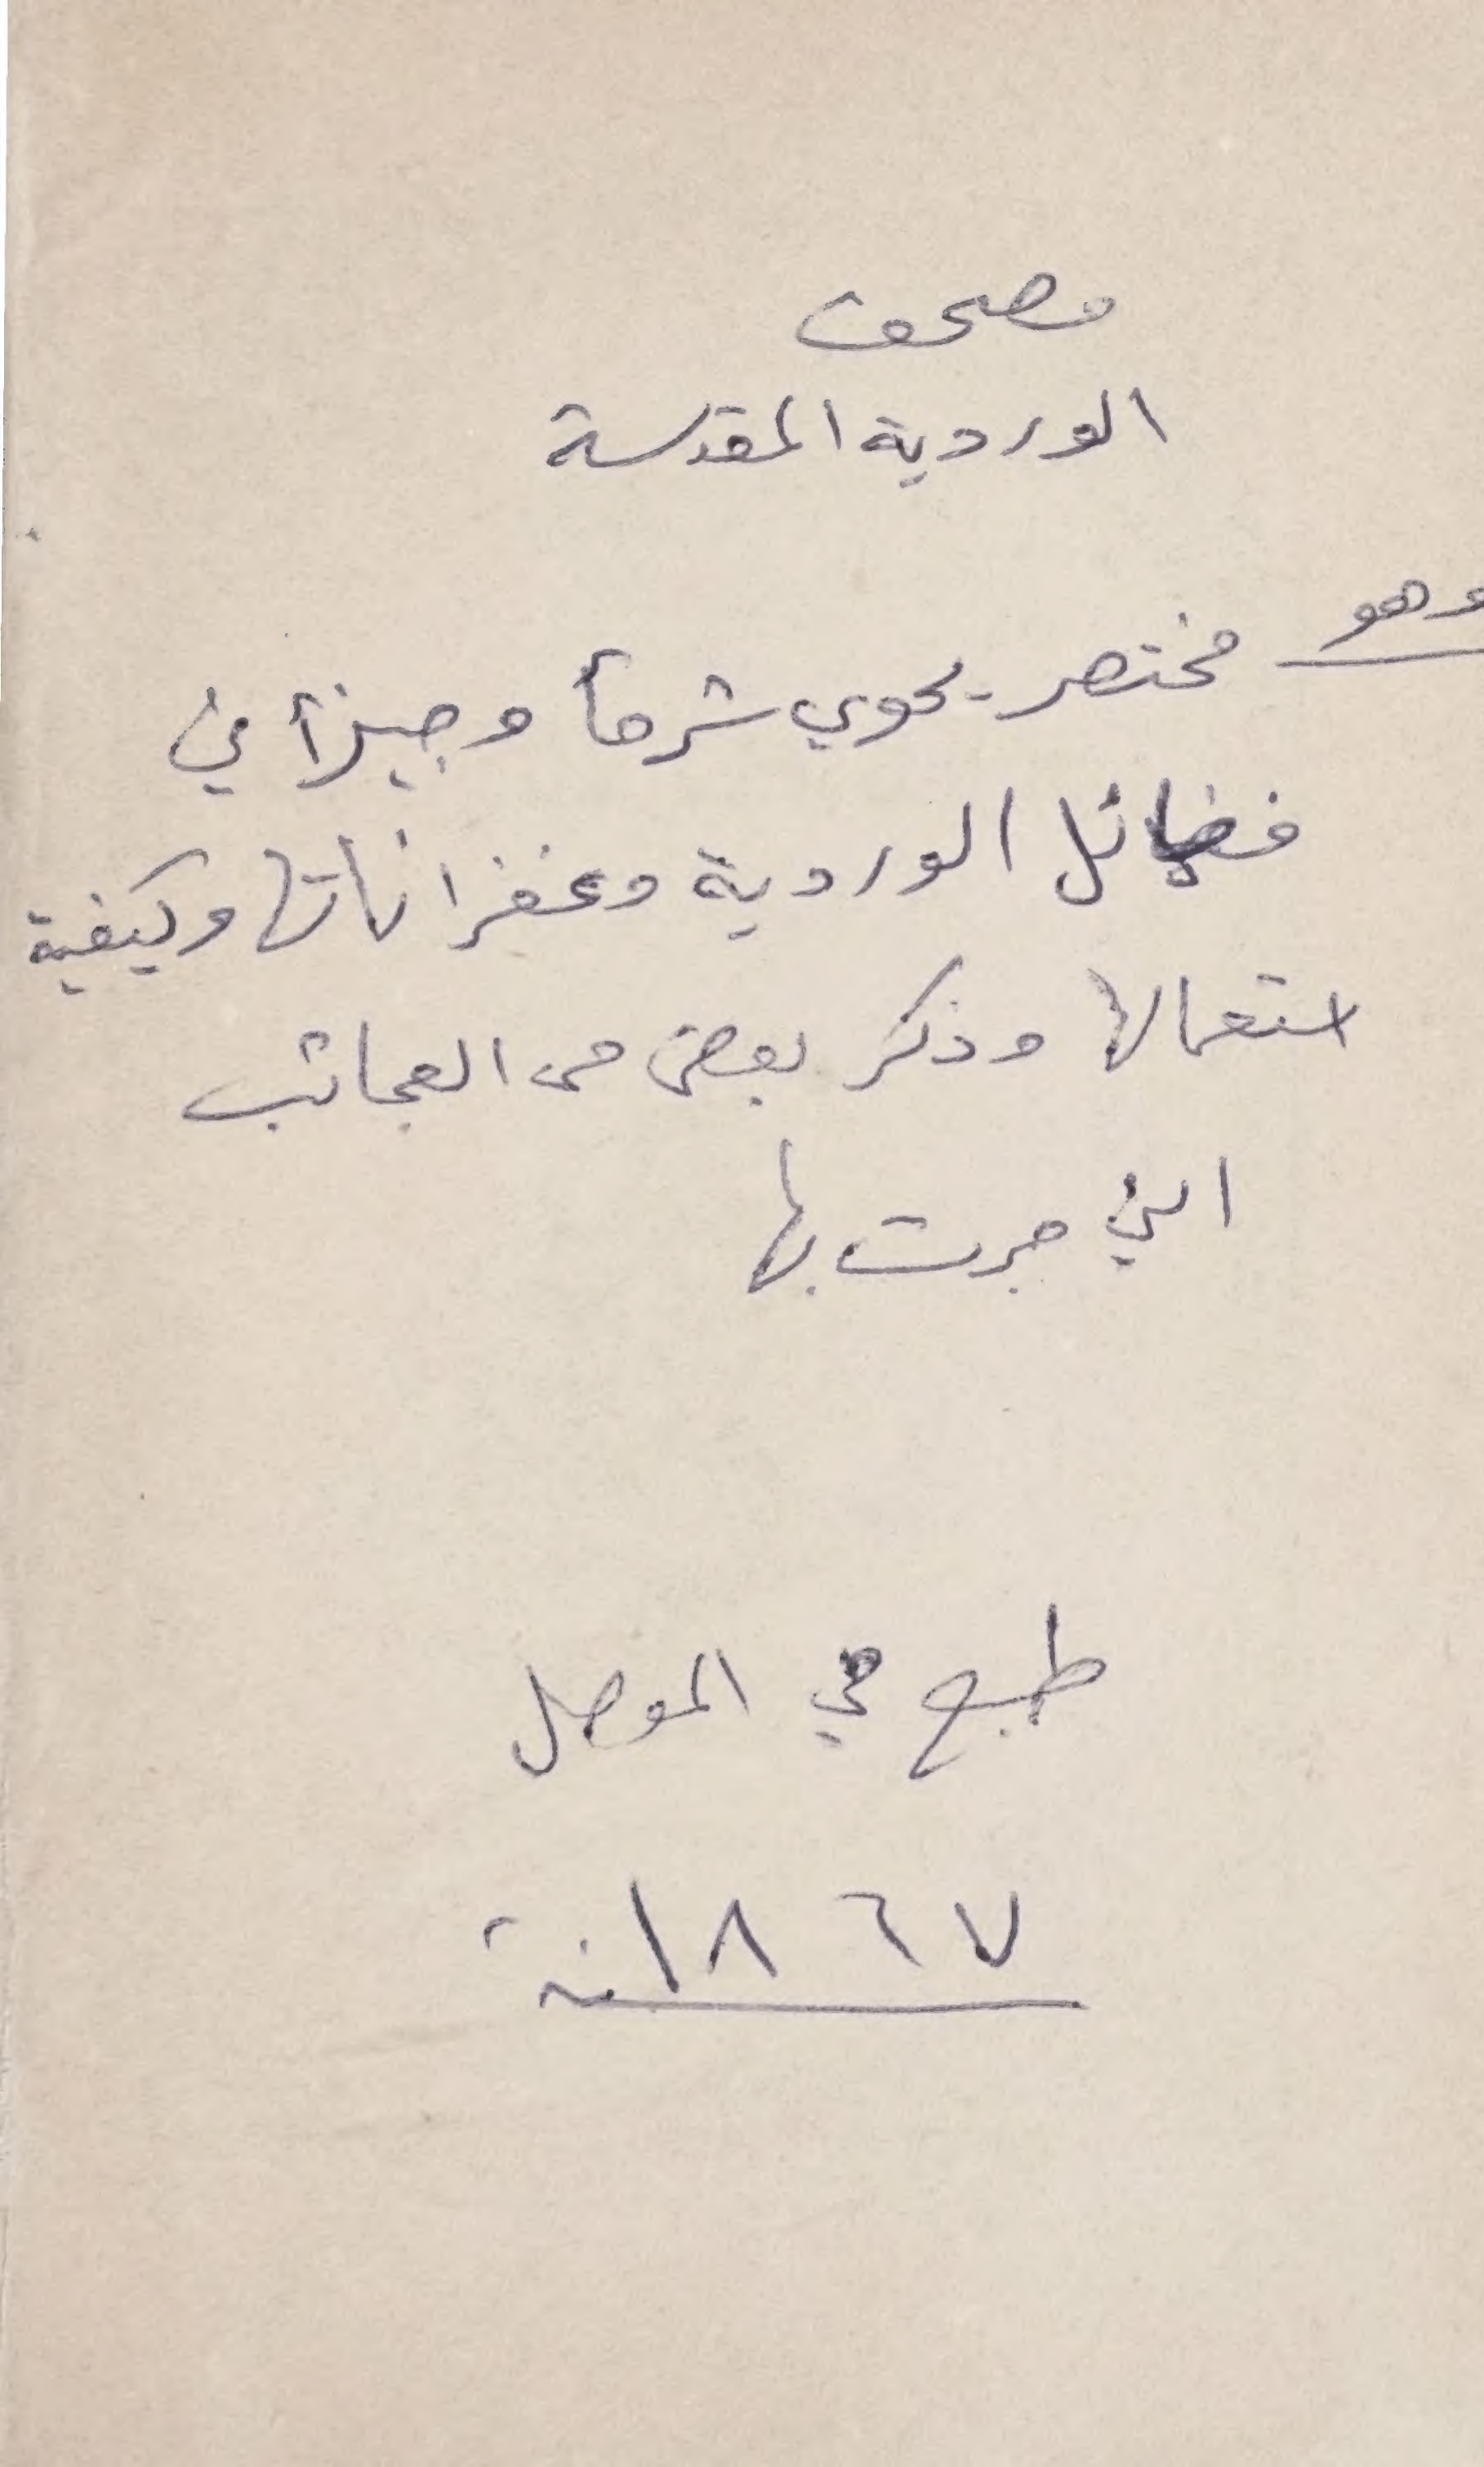 مصحف
الوردية المقدسة
وهو مختصر يحوي شرحاً وجيزاً في
فضائل الوردية وغفراناتها وكيفية
استعمالها وذكر بعض من العجائب
التي جرت بها
طبع في الموصل
سنة ١٨٦٧